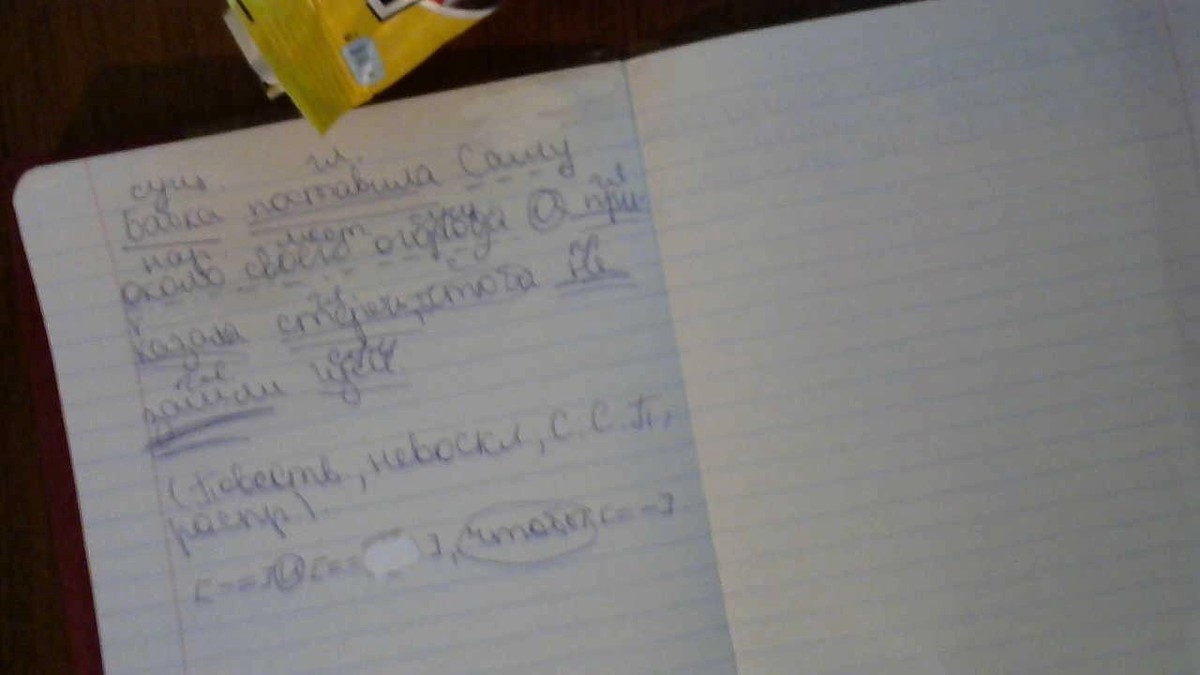 сущ. гл.
Бабка поставила Сашу
нар мест сущ гл
около своего огорода и при-
казала стеречь, чтоб Не
зашли
(Повеств, невоскл, С.С.П,
распр.)
[-=] и [== ], чтобы [=-].